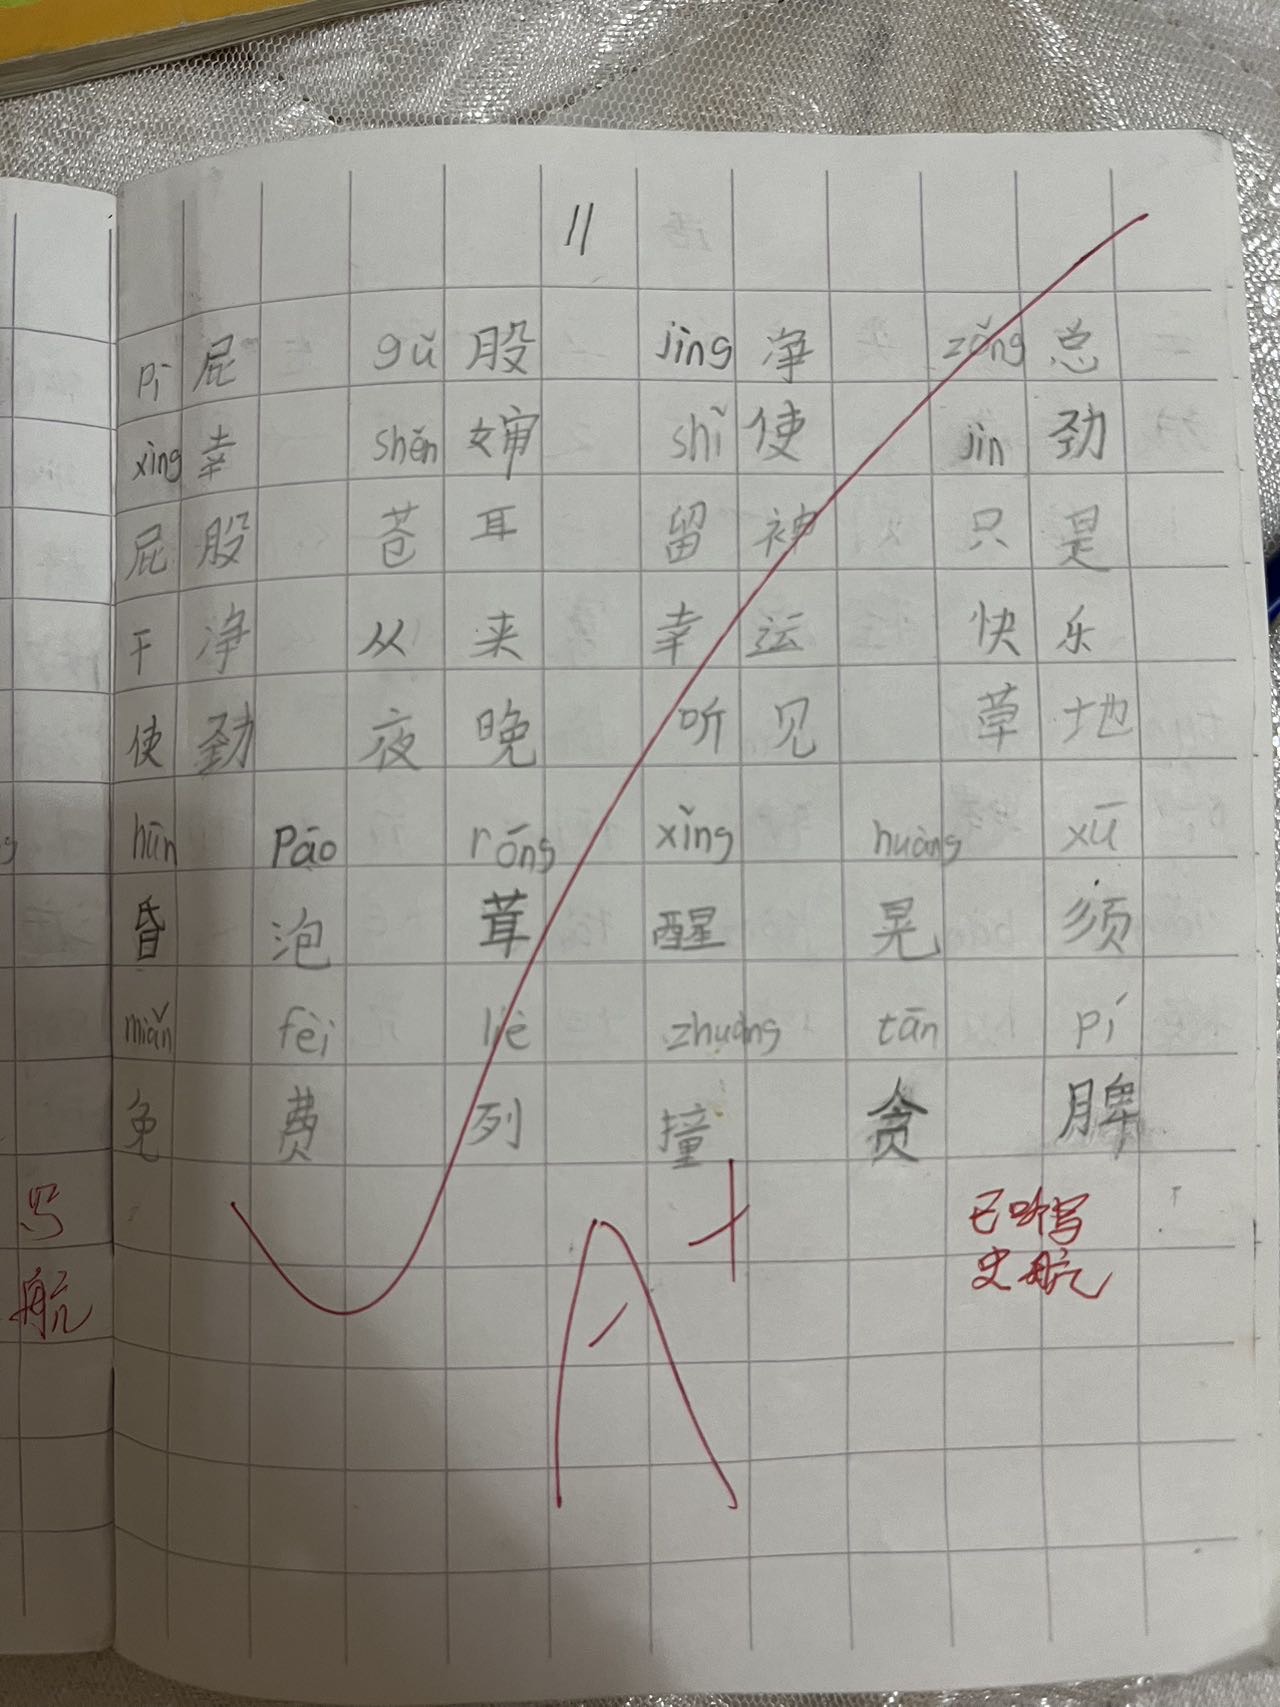 11
pì 屁 gǔ 股 jìng 净 zǒng 总
xìng 幸 shěn 婶 shǐ 使 jìn 劲
屁股 苍耳 留神 只是
干净 从来 幸运 快乐
使劲 夜晚 听见 草地
hūn pāo róng xǐng huàng xū
昏 泡 茸 醒 晃 须
miǎn fèi liè zhuàng tān pí
免 费 列 撞 贪 脾
写 已听写
航 史航
A+